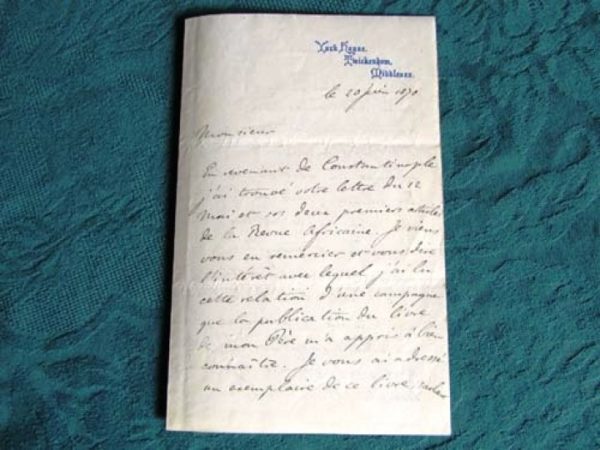 York House.
Twickenham,
Middlesex.
le 20 juin 1870
Monsieur
En revenant de Constantinople
j'ai trouvé votre lettre du 12
Mai et vos deux premiers articles
de la Revue Africaine. Je viens
vous en remercier et vous dire
l'intérêt avec lequel j'ai lu
cette relation d'une campagne
que la publication du livre
de mon Père m'a appris à bien
connaître. Je vous ai adressé
un exemplaire de ce livre